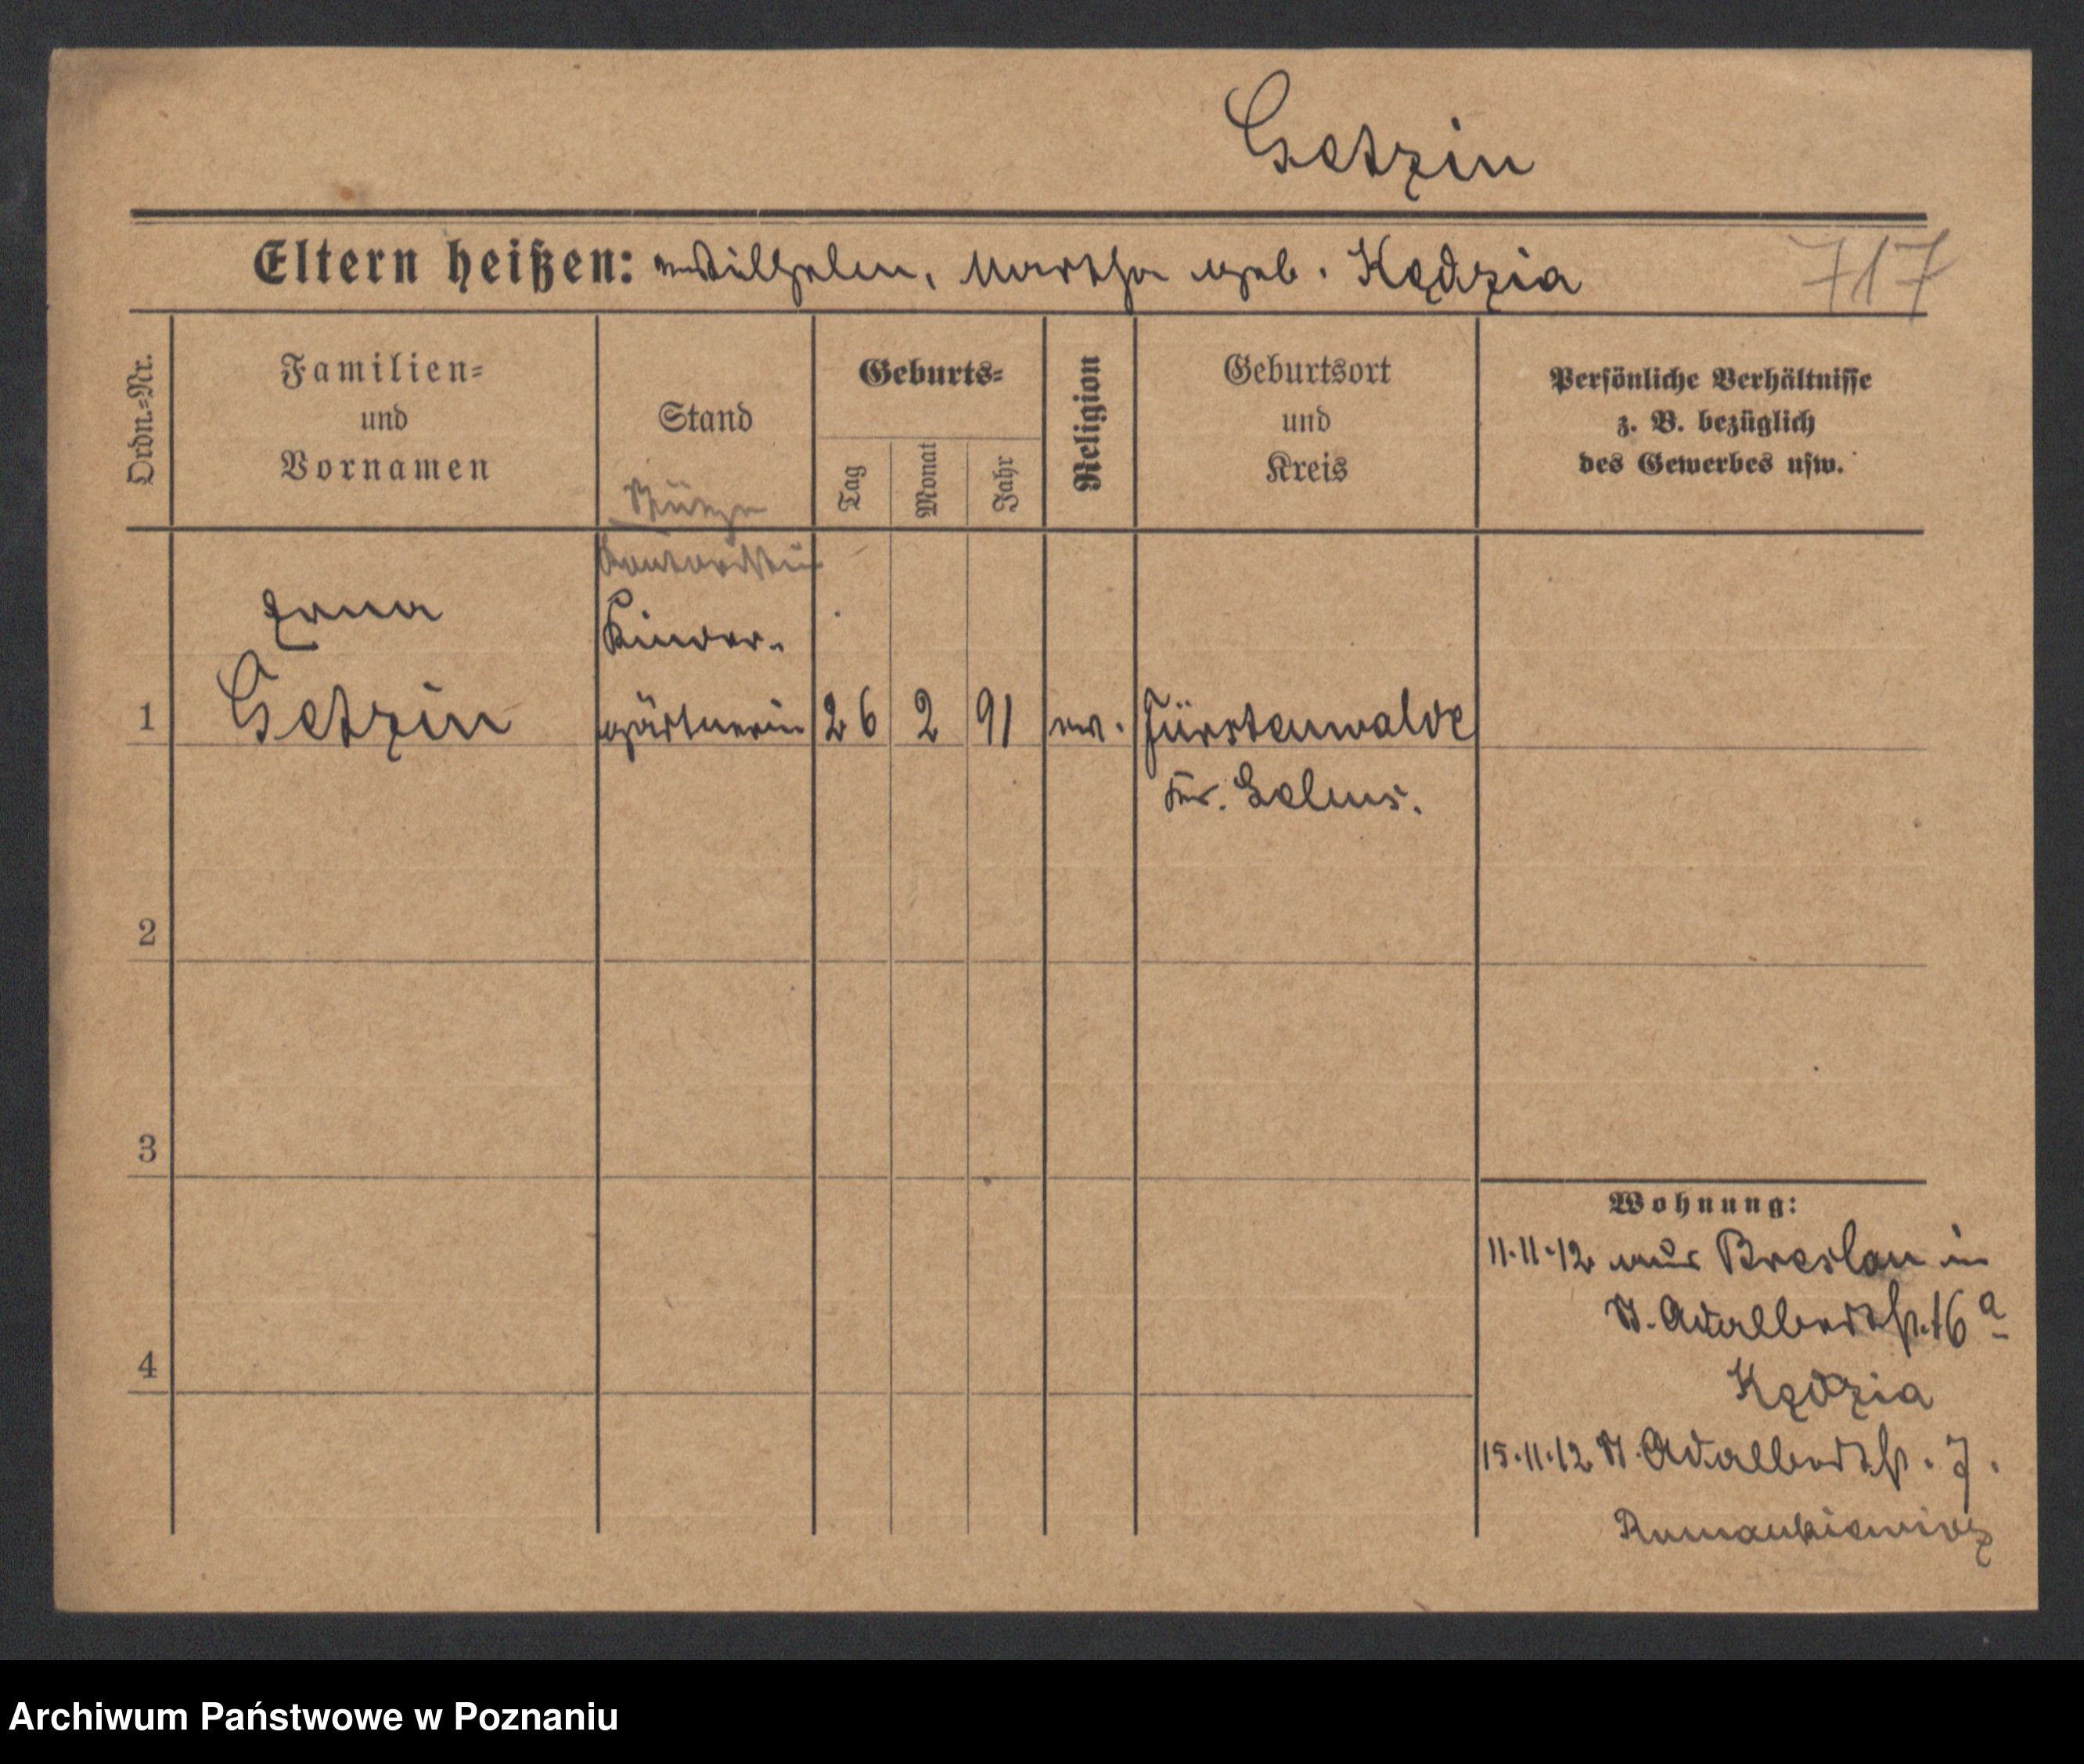 Getzin
Eltern heißen: Wilhelm, Martha geb. Kędzia
717
Ordn.-Nr.
Familien-
und
Vornamen
Stand
Geburts-
Tag
Monat
Jahr
Religion
Geburtsort
und
Kreis
Persönliche Verhältnisse
z. B. bezüglich
des Gewerbes usw.
Stütze
Kontoristin
Erna
Kinder-
1 Getzin gärtnerin 26 2 91 ev. Fürstenwalde
Kr. Lebus.
2
3
4
Wohnung:
11.11.12 aus Breslau in
St. Adalbertstr. 16a
Kędzia
15.11.12 St. Adalbertstr. 7.